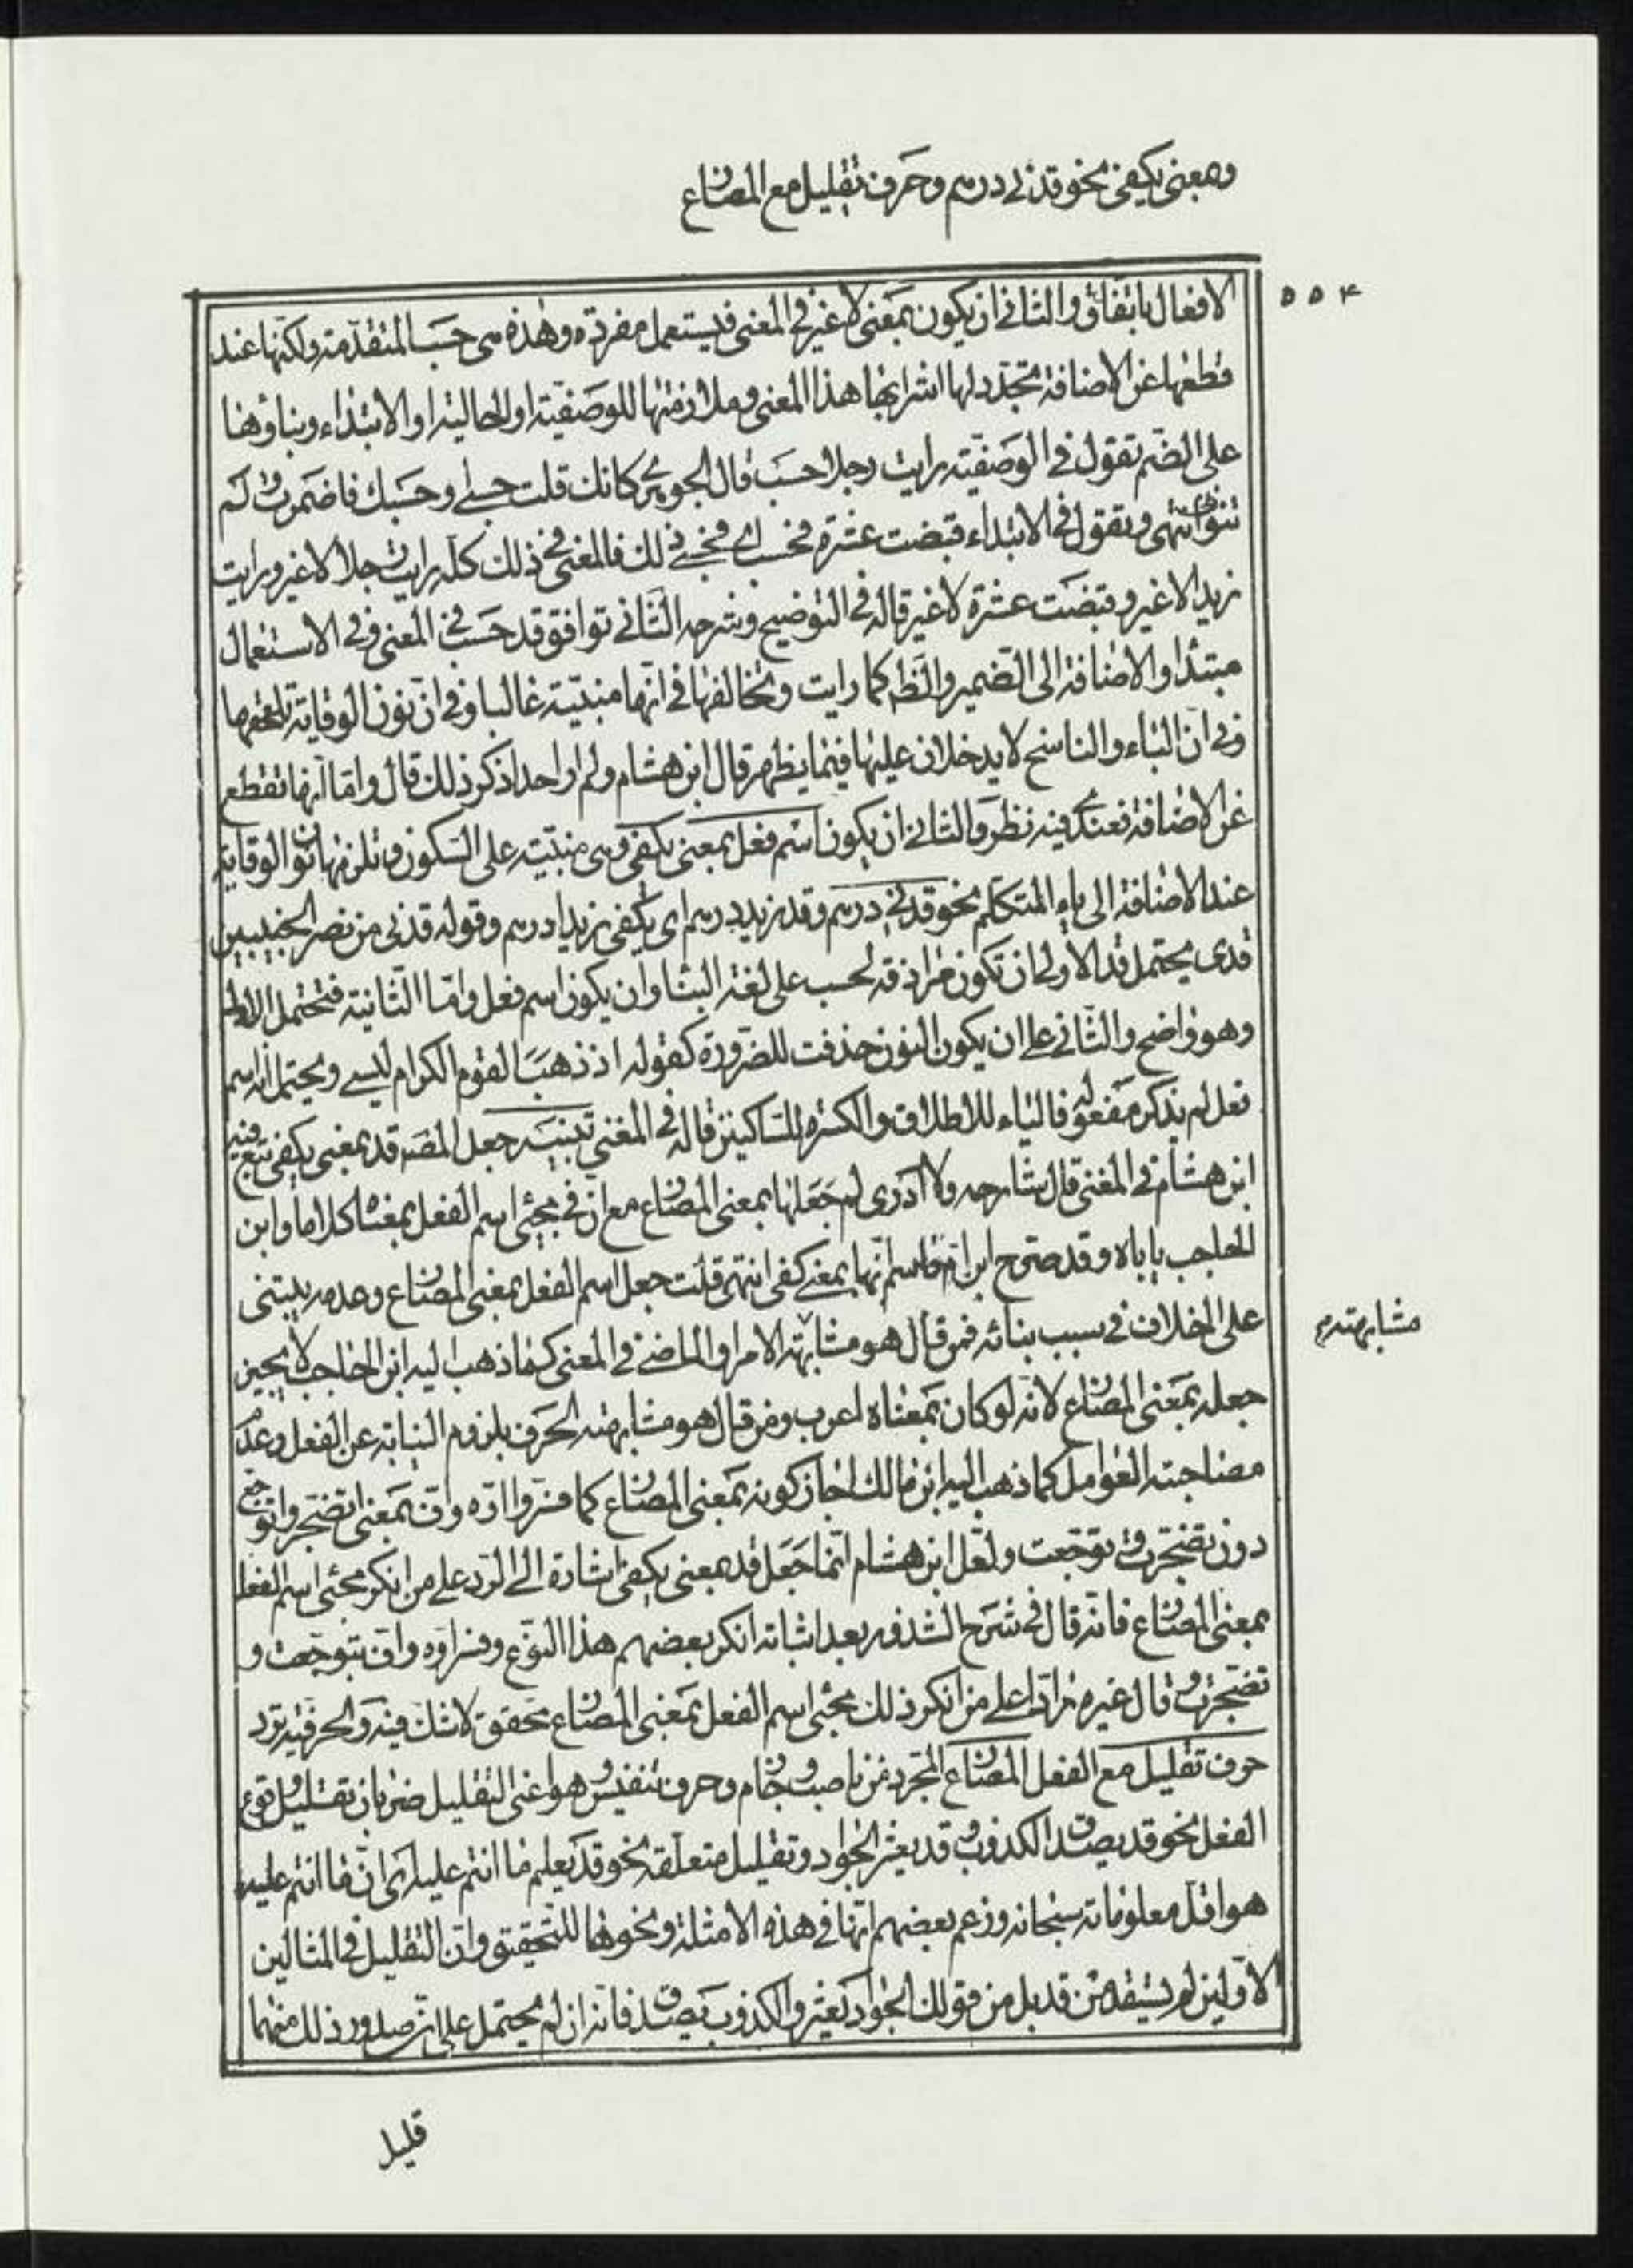 وبمعنى يكفى نحو قدنى درهم وحرف تقليل مع المضارع
٥٥٤
الافعال باتفاق والثانى ان يكون بمعنى لا غير فى المعنى فيستعمل مفردة وهذه هى حسب المتقدمة ولكنها عند
قطعها عن الاضافة تجدد لها اشرابها هذا المعنى وملازمتها للوصفية او الحالية او الابتداء وبناؤها
على الضم تقول فى الوصفية رايت رجلا حسب قال الجوهرى كانك قلت حسبى او حسبك فاضمرت ولم
تنون انتهى وتقول فى الابتداء قبضت عشرة فحسب اى فحسبى ذلك فالمعنى فى ذلك كله رايت رجلا لا غير ورايت
زيدا لا غير وقبضت عشرة لا غير قاله فى التوضيح وشرحه الثانى توافق قد حسب فى المعنى وفى الاستعمال
مبتدا والاضافة الى الضمير والظ كما رايت وتخالفها فى انها مبنية غالبا وفى ان نون الوقاية تلحقها
وفى ان الباء والناسخ لا يدخلان عليها فيما يظهر قال ابن هشام ولم ار احدا ذكر ذلك قال واما انها تقطع
عن الاضافة فعندى فيه نظر والثانى ان يكون اسم فعل بمعنى يكفى وهى مبنية على السكون وتلزمها نون الوقاية
عند الاضافة الى ياء المتكلم نحو قدنى درهم وقد زيدا درهم اى يكفى زيدا درهم وقوله قدنى من نصر الخبيبين
قدى يحتمل قد الاولى ان تكون مرادفة لحسب على لغة البناء وان يكون اسم فعل واما الثانية فتحتمل الاول
وهو واضح والثانى على ان يكون النون حذفت للضرورة كقوله اذ ذهب القوم الكرام ليسى ويحتمل انه اسم
فعل لم يذكر مفعوله فالياء للاطلاق والكسرة للساكنين قاله فى المغنى تنبيه جعل المصه قد بمعنى يكفى تبع فيه
ابن هشام فى المغنى قال شارحه ولا ادرى لم جعلها بمعنى المضارع مع ان فى مجئ اسم الفعل بمعناه كلاما وابن
الحاجب ياباه وقد صرح ابن ام قاسم انها بمعنى كفى انتهى قلت جعل اسم الفعل بمعنى المضارع وعدمه يبتنى
على الخلاف فى سبب بنائه فمن قال هو مشابهته الامر او الماضى فى المعنى كما ذهب اليه ابن الحاجب لا يجيز
مشابهته م
جعله بمعنى المضارع لانه لو كان بمعناه اعرب ومن قال هو مشابهته الحرف بلزوم النيابة عن الفعل وعدم
مصاحبته العوامل كما ذهب اليه ابن مالك اجاز كونه بمعنى المضارع كما فسروا اوه واف بمعنى اتضجر واتوجع
دون تضجرت وتوجعت ولعل ابن هشام انما جعل قد بمعنى يكفى اشارة الى الرد على من انكر مجئ اسم الفعل
بمعنى المضارع فانه قال فى شرح الشذور بعد اثباته انكر بعضهم هذا النوع وفسر اوه واف بتوجعت و
تضجرت وقال غيره رادا على من انكر ذلك مجئ اسم الفعل بمعنى المضارع محقق لا شك فيه والحرفية ترد
حرف تقليل مع الفعل المضارع المجرد من ناصب وجازم وحرف تنفيس وهو اعنى التقليل ضربان تقليل وقوع
الفعل نحو قد يصدق الكذوب وقد يعثر الجواد وتقليل متعلقه نحو قد يعلم ما انتم عليه اى ان ما انتم عليه
هو اقل معلوماته سبحانه وزعم بعضهم انها فى هذه الامثلة ونحوها للتحقيق وان التقليل فى المثالين
الاولين لم يستفد من قد بل من قولك الجواد يعثر والكذوب يصدق فانه ان لم يحتمل على ان صدور ذلك منهما
قليل